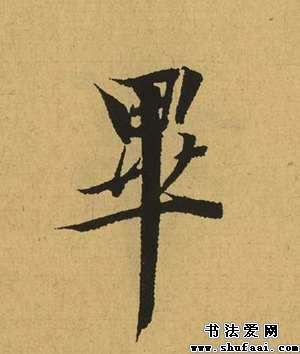 畢
书法爱网
www.shufaai.com